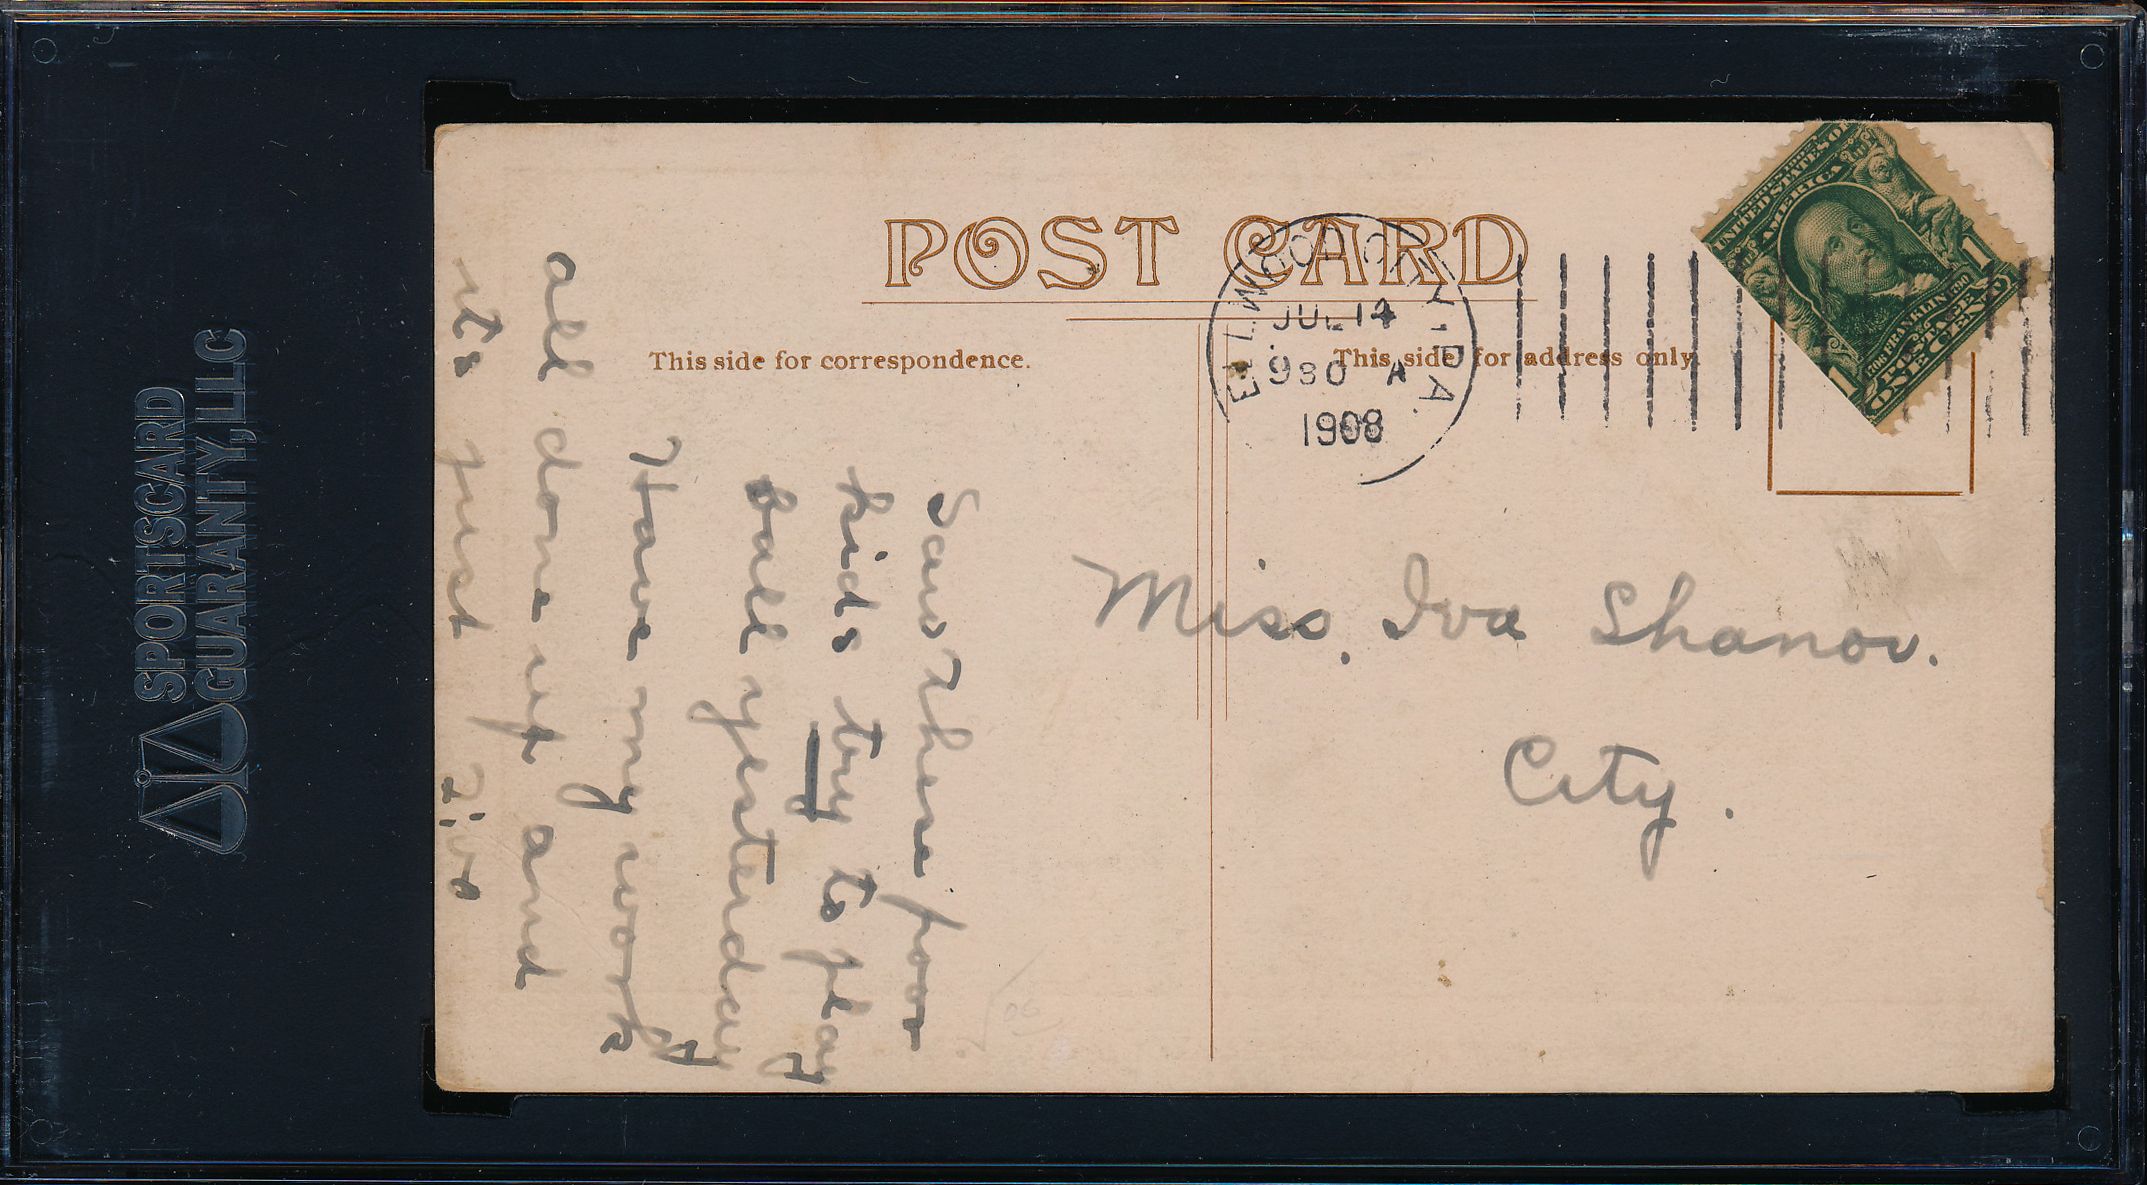 SPORTSCARD
GUARANTY, LLC
POST CARD
This side for correspondence.
This side for address only.
ELLWOOD CITY PA.
JUL 14
930 A
1908
UNITED STATES OF
AMERICA
FRANKLIN 1790
ONE CENT
1
1
Miss. Iva Shanor.
City.
Saw those poor
kids try to play
ball yesterday
Have my work
all done up and
its just